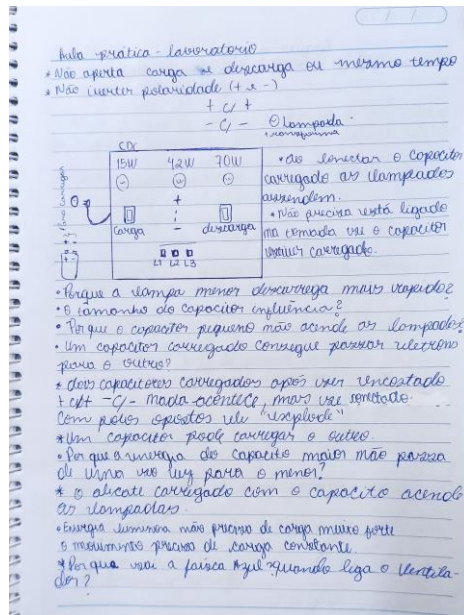 Aula prática - laboratorio
* Não aperta carga e descarga ou mesmo tempo
* Não inverter polaridade (+ e -)
+ c/ +
- c/ - Lampada
CDC
15W 42W 70W
+
-
carga descarga
L1 L2 L3
* ao conectar o capacitor
carregado as lampadas
acendem.
* Não precisa está ligado
na tomada se o capacitor
estiver carregado.
• Porque a lampa menor descarrega mais rapido?
• O tamanho do capacitor influência?
• Porque o capacitor pequeno não acende as lampadas?
• Um capacitor carregado consegue passar eletrons
para o outro?
* dois capacitores carregados após ser encostado
+ c/+ - c/- nada acontece, mas se conectado
com polos opostos ele "explode"
* Um capacitor pode carregar o outro.
• Por que a energia do capacito maior não passa
de uma vez para o menor?
* o alicate carregado com o capacito acende
as lampadas.
• Energia luminosa não precisa de carga muito forte
o movimento precisa de carga constante.
* Por que sai a faísca azul quando liga o ventila-
dor?